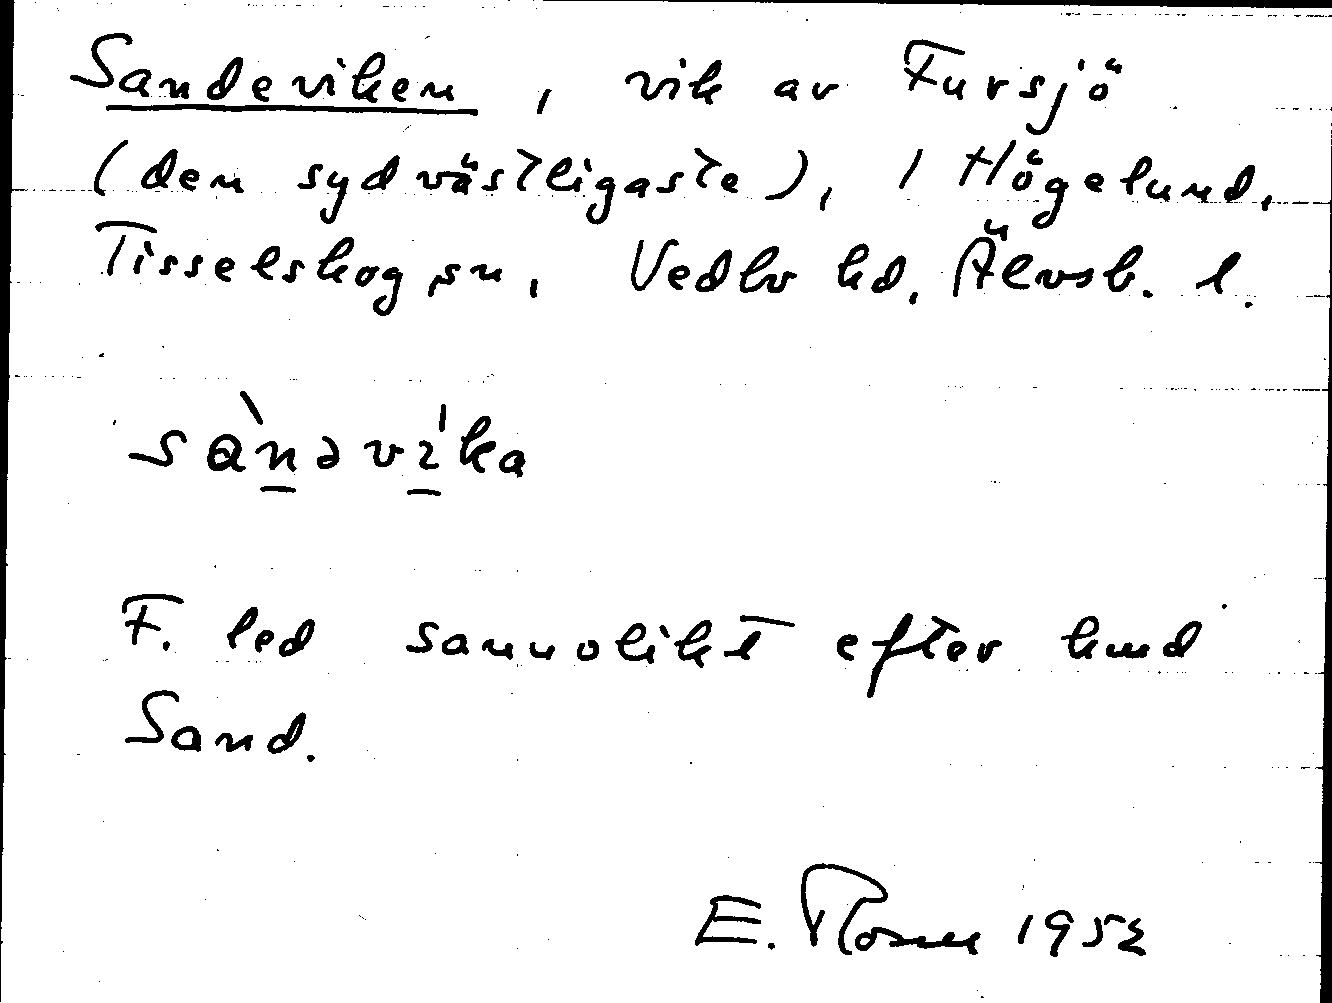 Sandeviken, vik av Fursjö
(den sydvästligaste), i Högelund,
Tisselskog sn, Vedbo hd, Älvsb. l.
sànəvi̱ka
F. led sannolikt efter hmd
Sand.
E. 1952